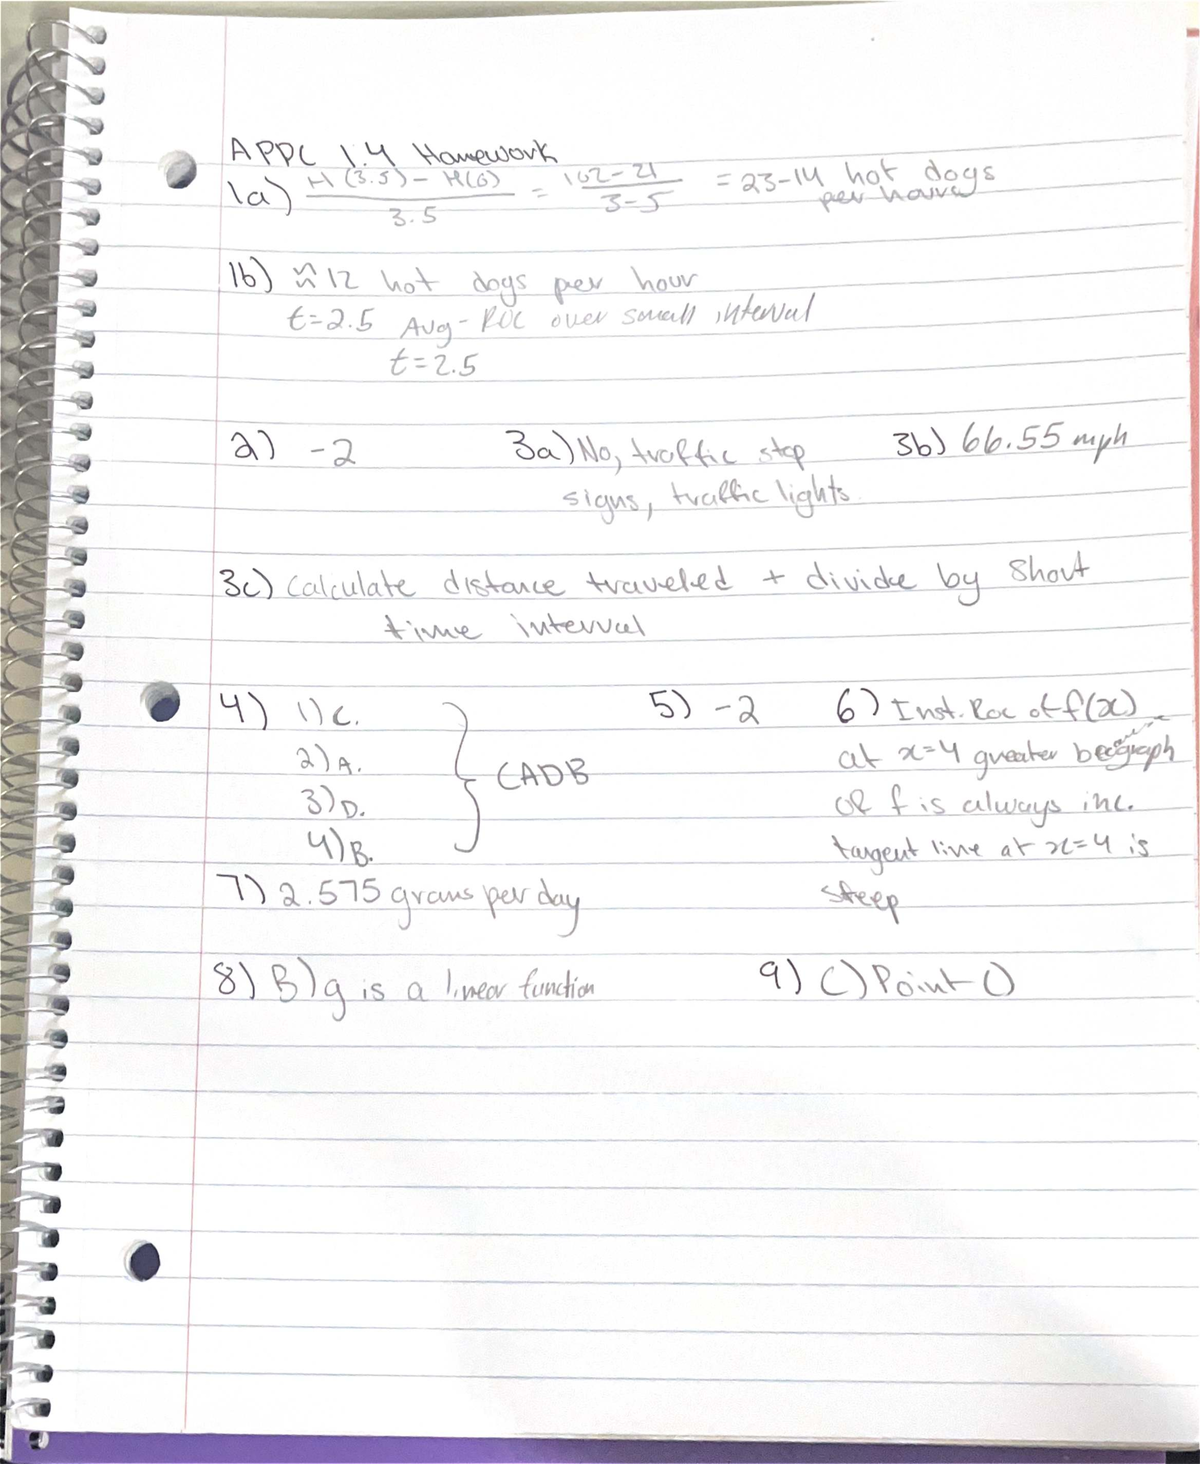 APPC 1.4 Homework
1a) H(3.5) - H(0) / 3.5 = 102-21 / 3-5 = 23-14 hot dogs per hour
1b) ≈12 hot dogs per hour
t=2.5 Avg-ROC over small interval
t=2.5
2) -2 3a) No, traffic stop 3b) 66.55 mph
signs, traffic lights
3c) Calculate distance traveled + divide by short
time interval
4) 1) C. 5) -2 6) Inst. Roc of f(x)
2) A. at x=4 greater graph
CADB
3) D. of f is always inc.
4) B. tangent line at x=4 is
7) 2.575 grams per day steep
8) B) g is a linear function 9) C) Point C)